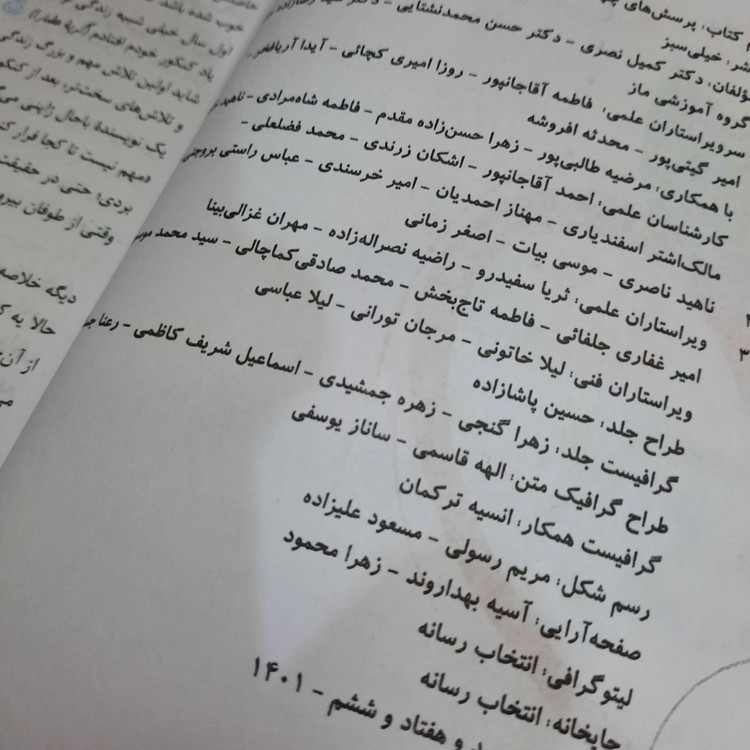 کتاب: پرسش‌های
خیلی‌سبز
دکتر کمیل نصری - دکتر حسن محمدنشتایی - دکتر
گروه آموزشی ماز
سرویراستاران علمی: فاطمه آقاجانپور - روزا امیری کچائی - آیدا
امیر گیتی‌پور - محدثه افروشه
با همکاری: مرضیه طالبی‌پور - زهرا حسن‌زاده مقدم - فاطمه شاه‌مرادی - ناهید
کارشناسان علمی: احمد آقاجانپور - اشکان زرندی - محمد فضلعلی -
مالک‌اشتر اسفندیاری - مهناز احمدیان - امیر خرسندی - عباس راستی بروجنی
ناهید ناصری - موسی بیات - اصغر زمانی
ویراستاران علمی: ثریا سفیدرو - راضیه نصراله‌زاده - مهران غزالی‌بینا
امیر غفاری جلفائی - فاطمه تاج‌بخش - محمد صادقی‌کماچالی - سید محمد
ویراستاران فنی: لیلا خاتونی - مرجان تورانی - لیلا عباسی
طراح جلد: حسین پاشازاده
گرافیست جلد: زهرا گنجی - زهره جمشیدی - اسماعیل شریف کاظمی - رعنا
طراح گرافیک متن: الهه قاسمی - ساناز یوسفی
گرافیست همکار: انسیه ترکمان
رسم شکل: مریم رسولی - مسعود علیزاده
صفحه‌آرایی: آسیه بهداروند - زهرا محمود
لیتوگرافی: انتخاب رسانه
چاپخانه: انتخاب رسانه
و هفتاد و ششم - ۱۴۰۱
خوب شده باشد
اول سال خیلی شبیه زندگی
یاد کنکور خودم افتادم
شاید اولین تلاش مهم و بزرگ زندگی
و تلاش‌های سخت‌تر، بعد از کنکور
یک نویسندهٔ باحال ژاپنی
«مهم نیست تا کجا فرار
بردی؛ حتی در حقیقت
وقتی از طوفان
دیگه خلاصه
حالا یه
از آن